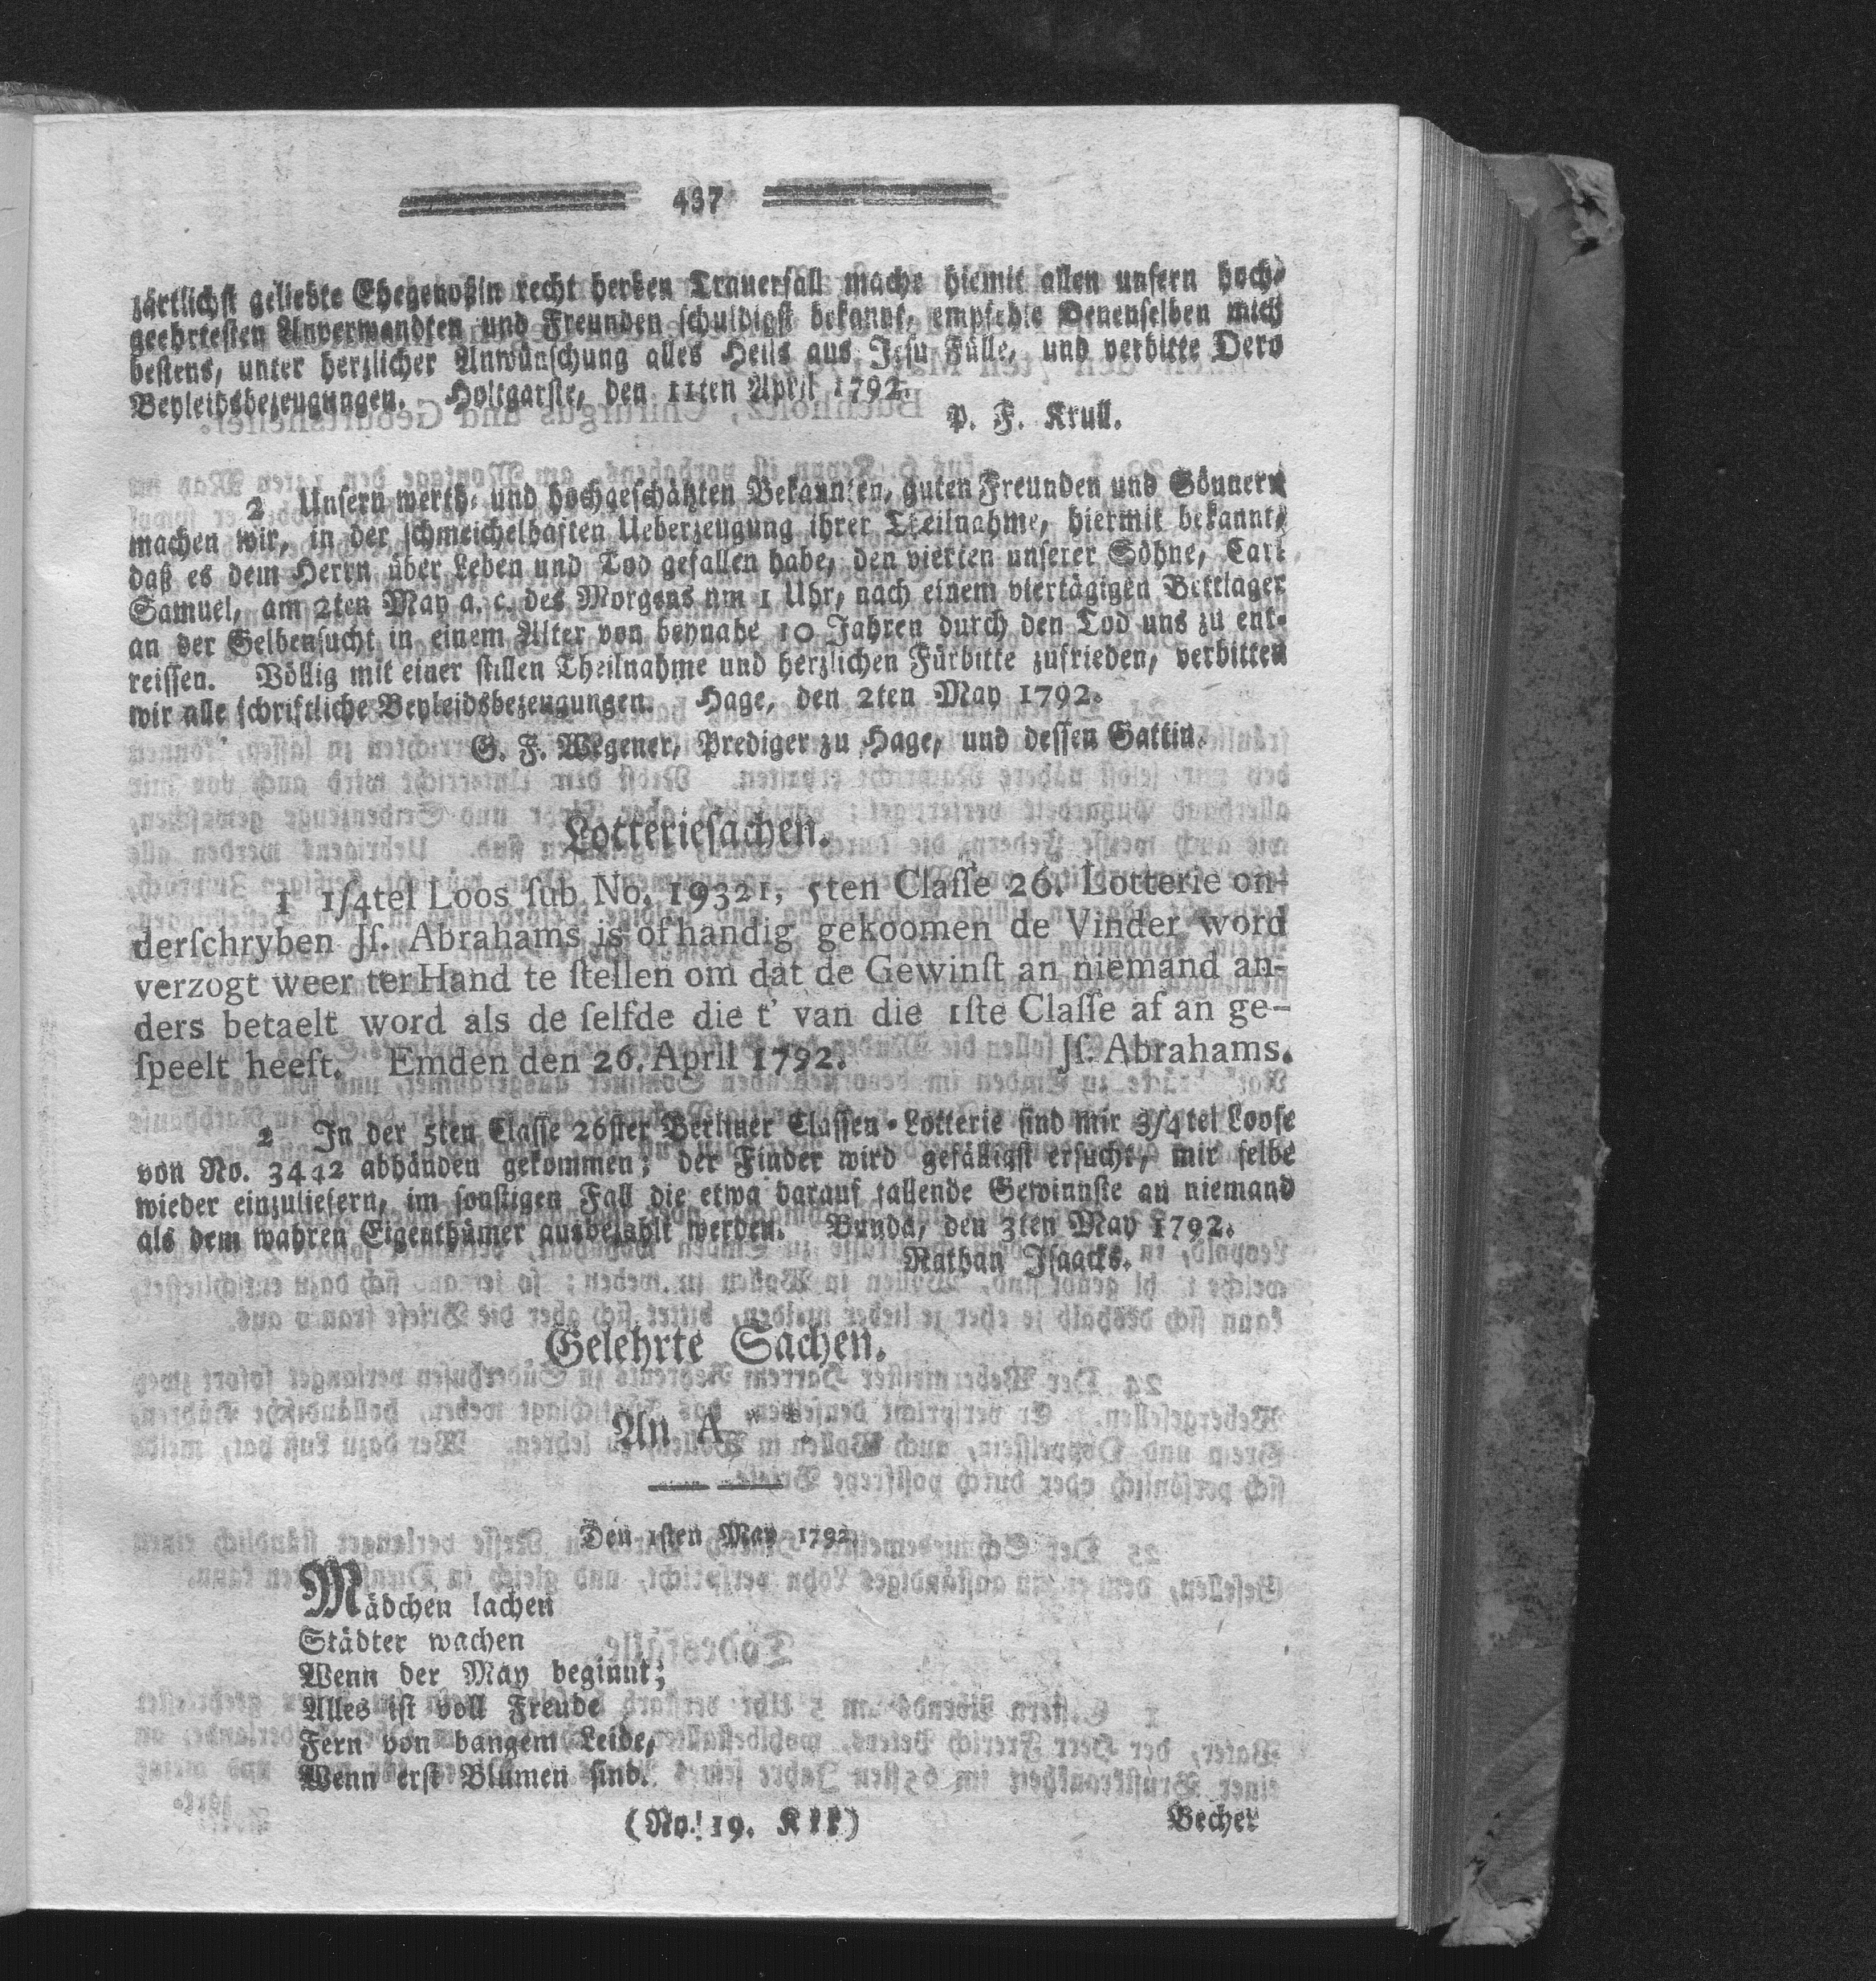 437
zärtlichst geliebte Ehegenoßin recht herben Trauerfall mache hiemit allen unsern hoch-
geehrtesten Anverwandten und Freunden schuldigst bekannt, empfehle Denenselben mich
bestens, unter herzlicher Anwünschung alles Heils aus Jesu Fülle, und verbitte Dero
Beyleidsbezeugungen. Holtgarste, den 11ten April 1792.
P. F. Krull.
2 Unsern werth- und hochgeschätzten Bekannten, guten Freunden und Gönnern
machen wir, in der schmeichelhaften Ueberzeugung ihrer Theilnahme, hiermit bekannt,
daß es dem Herrn über Leben und Tod gefallen habe, den vierten unserer Söhne, Carl
Samuel, am 2ten May a. c. des Morgens um 1 Uhr, nach einem viertägigen Bettlager
an der Gelbensucht in einem Alter von beynahe 10 Jahren durch den Tod uns zu ent-
reissen. Völlig mit einer stillen Theilnahme und herzlichen Fürbitte zufrieden, verbitten
wir alle schriftliche Beyleidsbezeugungen. Hage, den 2ten May 1792.
G. F. Wegener, Prediger zu Hage, und dessen Gattin.
Lotteriesachen.
1 1/4tel Loos ſub No. 19321, 5ten Claſſe 26. Lotterie on-
derſchryben Jſ. Abrahams is of handig gekoomen de Vinder word
verzogt weer ter Hand te ſtellen om dat de Gewinſt an niemand an-
ders betaelt word als de ſelfde die t' van die 1ſte Claſſe af an ge-
ſpeelt heeft. Emden den 26. April 1792. Jſ. Abrahams.
2 In der 5ten Classe 26ster Berliner Classen-Lotterie sind mir 3/4tel Loose
von No. 3442 abhänden gekommen; der Finder wird gefälligst ersucht, mir selbe
wieder einzuliefern, im sonstigen Fall die etwa darauf fallende Gewinnste an niemand
als dem wahren Eigenthümer ausbezahlt werden. Bunda, den 3ten May 1792.
Nathan Isaacks.
Gelehrte Sachen.
An A
Den 1sten May 1792.
Mädchen lachen
Städter wachen
Wenn der May beginnt;
Alles ist voll Freude
Fern von bangem Leide,
Wenn erst Blumen sind.
(No. 19. Kkk)
Becher